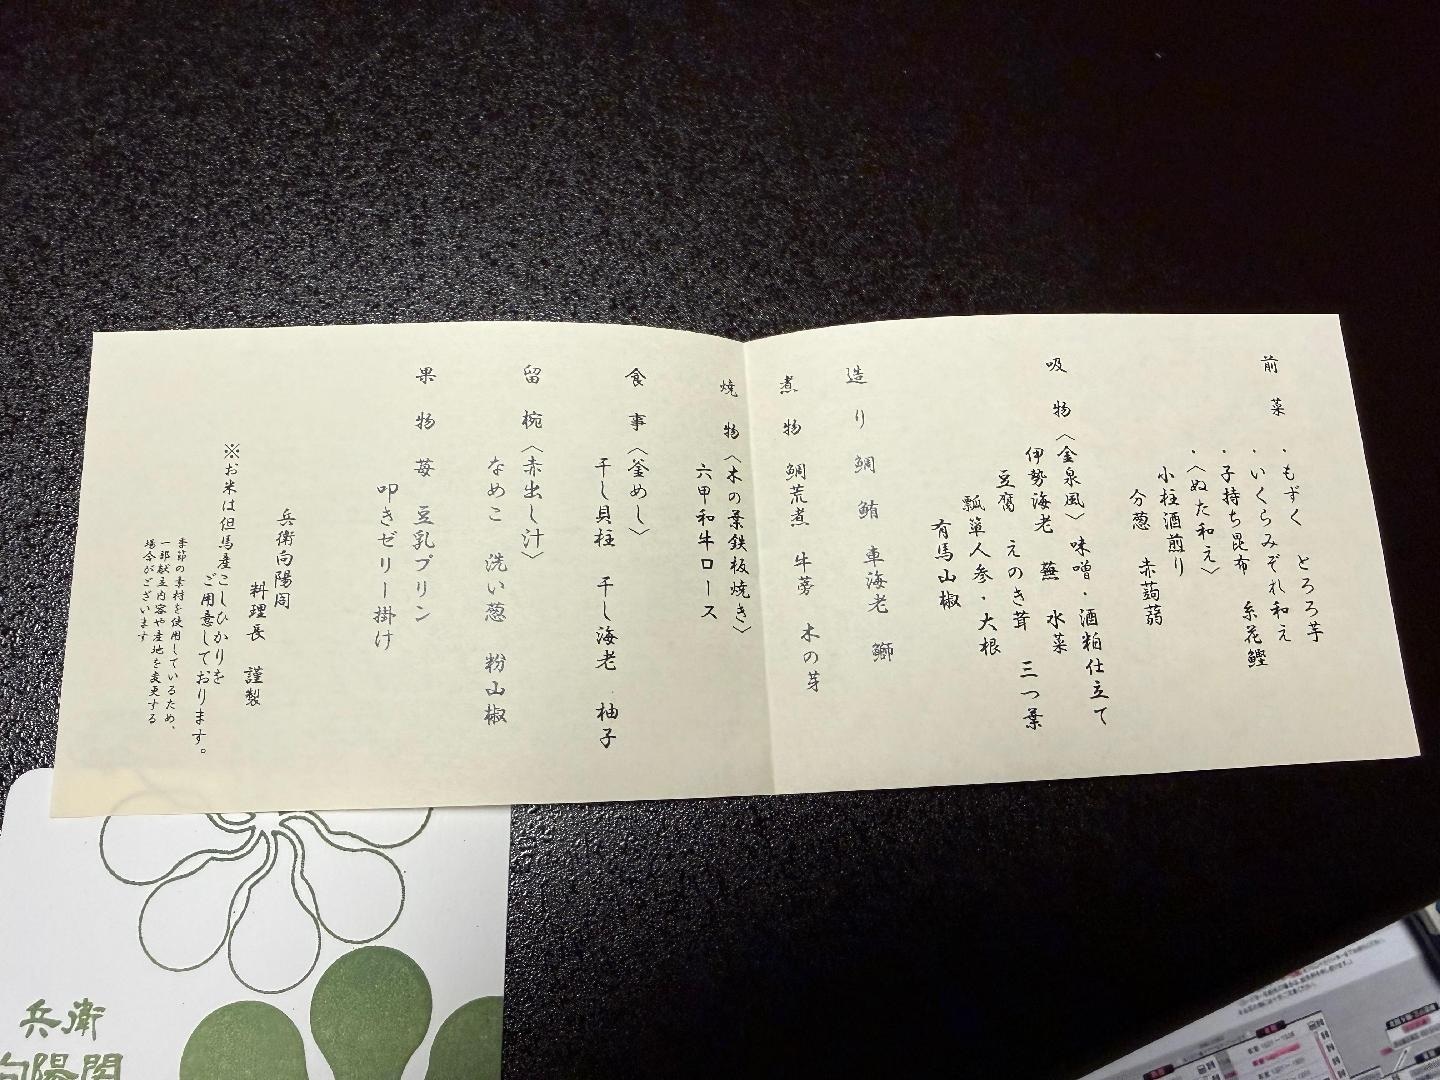 前菜
・もずく とろろ芋
・いくらみぞれ和え
・子持ち昆布 糸花鰹
・〈ぬた和え〉
小柱酒煎り
分葱 赤蒟蒻
吸物〈金泉風〉味噌・酒粕仕立て
伊勢海老 蕪 水菜
豆腐 えのき茸 三つ葉
瓢箪人参・大根
有馬山椒
造り 鯛 鮪 車海老 鰤
煮物 鯛荒煮 牛蒡 木の芽
焼物〈木の葉鉄板焼き〉
六甲和牛ロース
食事〈釜めし〉
干し貝柱 干し海老 柚子
留椀〈赤出し汁〉
なめこ 洗い葱 粉山椒
果物 苺 豆乳プリン
叩きゼリー掛け
兵衛向陽閣
料理長 謹製
※お米は但馬産こしひかりを
ご用意しております。
季節の素材を使用しているため、
一部献立内容や産地を変更する
場合がございます
兵衛
向陽閣